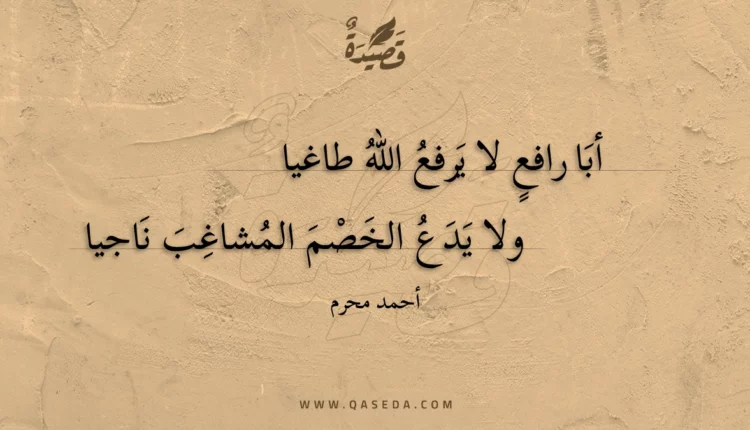 قَصِيدَةٌ
أبَا رافعٍ لا يَرفعُ اللهُ طاغيا
ولا يَدَعُ الخَصْمَ المُشاغِبَ نَاجيا
أحمد محرم
WWW.QASEDA.COM